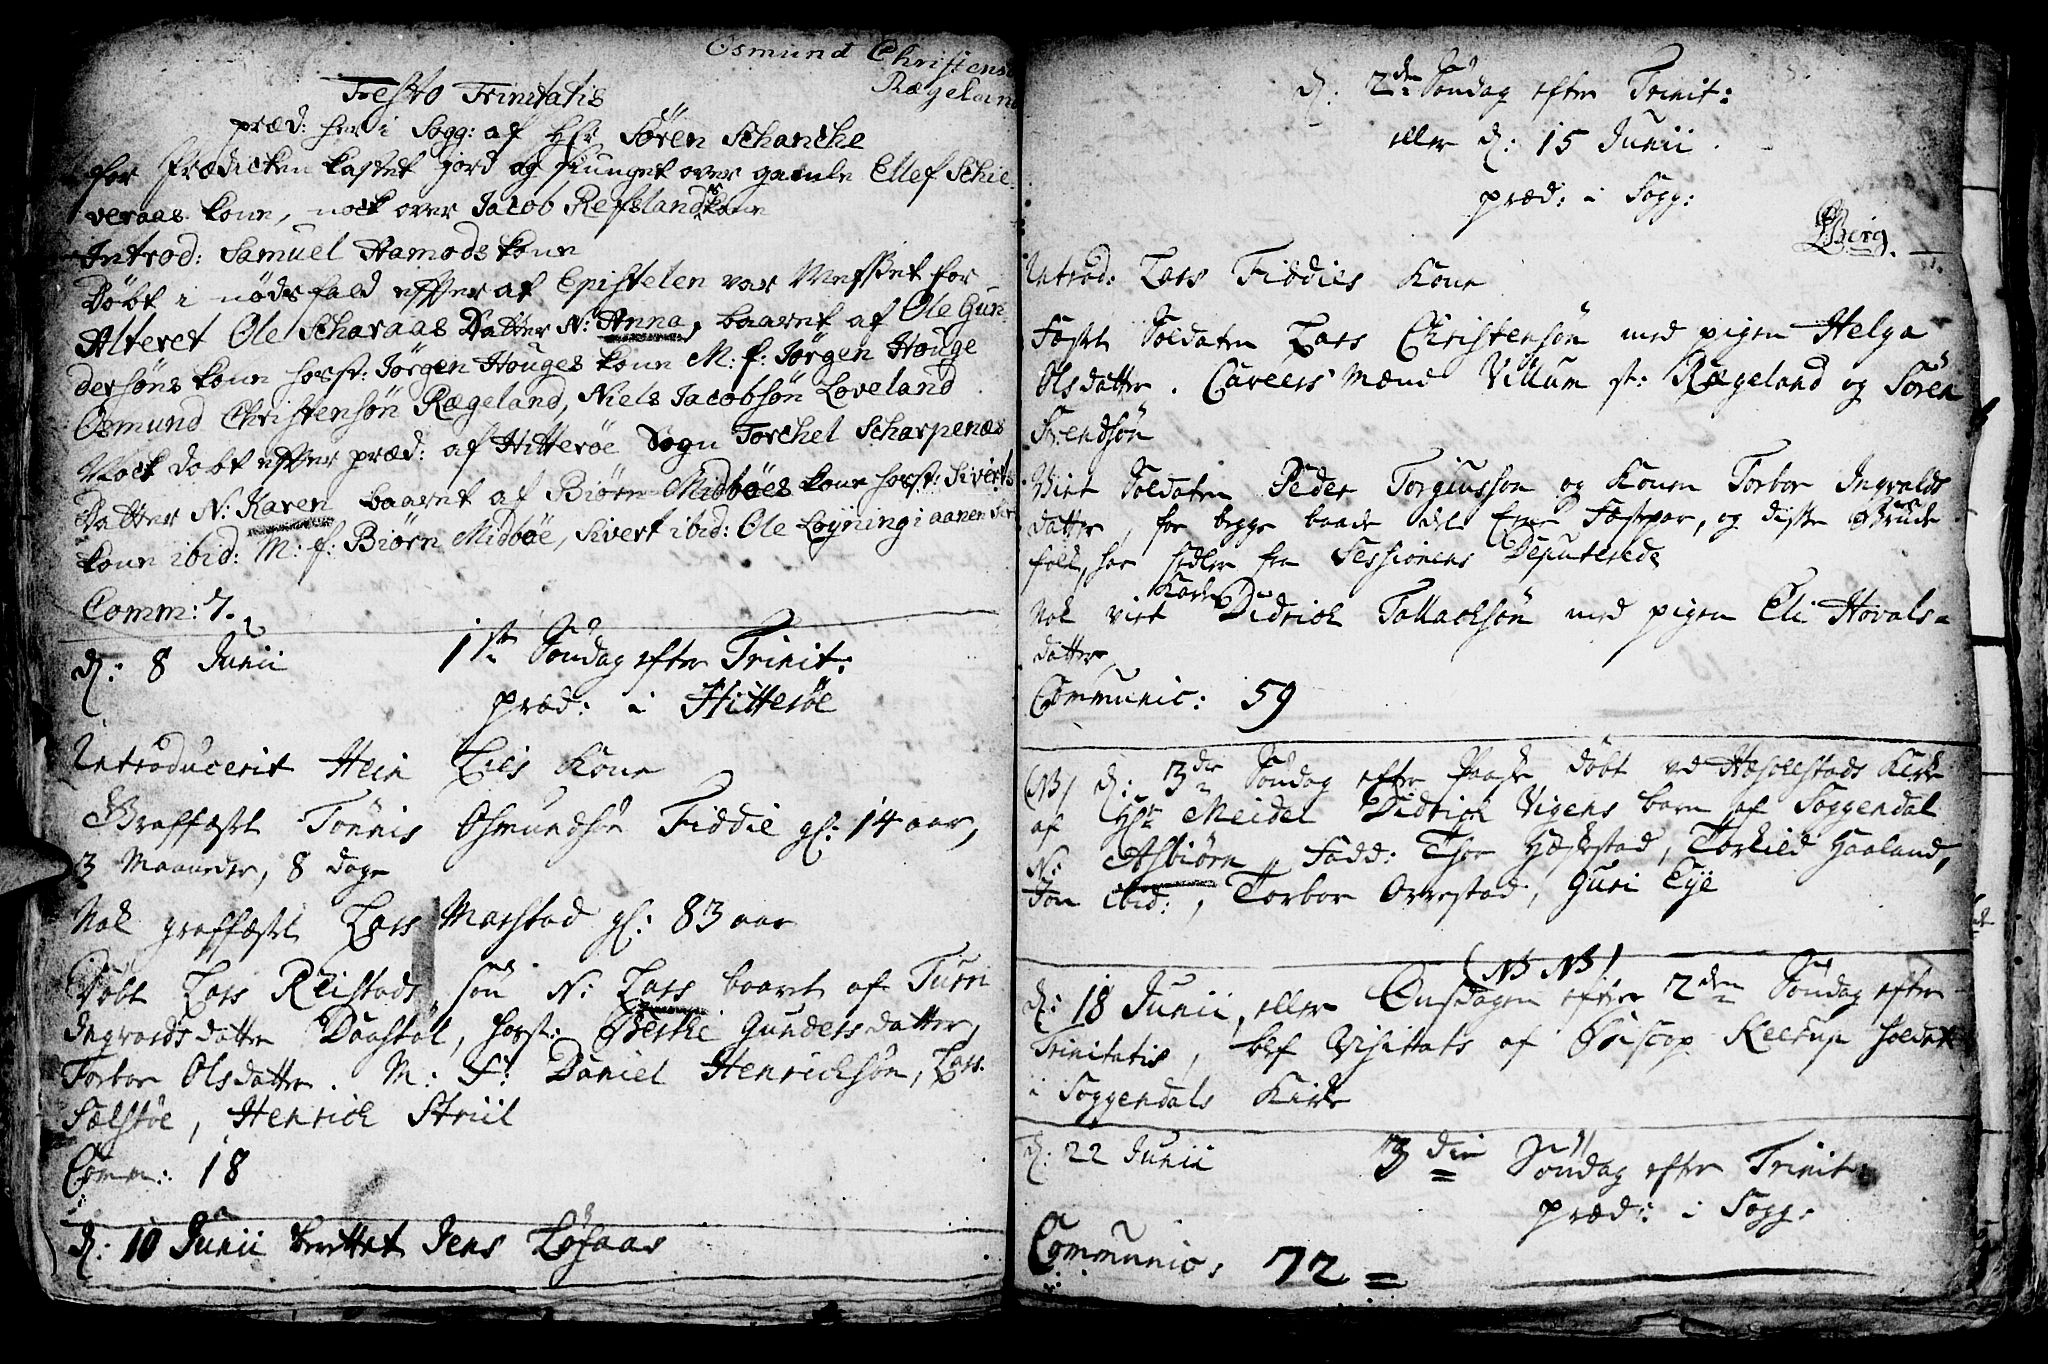 Osmund Christens
Rægeland
Festo Trinitatis
præd: her i Sogg: af Hr Sören Schancke
for Prædicken kastet jord og siunget over gamle Ellef Schie-
veraas kone, nock over Jacob Refslands kone
Introd: Samuel Hamods kone
Döbt i nödsfald effter at Epistelen var Messet for
Alteret Ole Scharaas Datter N: Anna, baaret af Ole Gun-
dersöns kone hosst: Jørgen Houges kone M: f: Jørgen Houge
Osmund Christensön Rægeland, Niels Jacobsön Loveland
Nock döbt effter præd: af Hitteröe Sogn Torchel Scharpenæs
Datter N: Karen baaret af Biörn Midböes kone hosst: Siverts
kone ibid: M: f: Biørn Midböe, Sivert ibid: Ole Löyning i aanen Sir
Comm: 7.
d: 8 Junii 1ste Søndag efter Trinit:
præd: i Hitteröe
Introducerit Hein Lies Kone
Graffæstt Tönnis Osmundsön Fiddie gl: 14 aar,
3 Maaneder, 8 dage
Nok graffæstt Lars Marstad gl: 83 aar
Döbt Lars Reistads sön N: Lars baaret af Turi
Ingvaldsdatter Daastöl, hosst: Berthe Gundersdatter,
Torbor Olsdatter. M: F: Daniel Henrichsön, Lars
Sælstöe, Henrich Striil
Comm: 18
d: 10 Junii berettet Jens Løsaas
d: 2den Søndag efter Trinit:
eller d: 15 Junii.
præd: i Sogg:
Berg.
Introd: Lars Fiddies Kone
Fæstt Soldaten Lars Christensön med pigen Helga
Olsdatter. Caveers Mænd Villum st: Rægeland og Sören
Svendsön
Viet Soldaten Peder Torgiussön og Konen Torbor Ingvalds
datter, for begge baade det Ene Fæstepar, og disse Brude
folk, har sedler fra Sessionens Deputerede
Nok viet Karl Didrich Tollachsön med pigen Eli Hovals-
datter,
Communic: 59
(NB) d: 3die Søndag efter Paaske döbt ved Hæschestads Kirke
af Hr Meidel Didrich Vigens barn af Soggendal
N: Asbiörn, Fadd: Thor Hæskestad, Torkild Haaland,
Jon ibid:, Torbor Orrestad, Guri Eye
(NB NB)
d: 18 Junii, eller Onsdagen efter 2den Søndag efter
Trinitatis, blef Visitats af Biscop Kærup holdet
i Soggendals Kirke
d: 22 Junii 3die Søndag efter Trinit:
præd: i Sogg:
Communic: 72